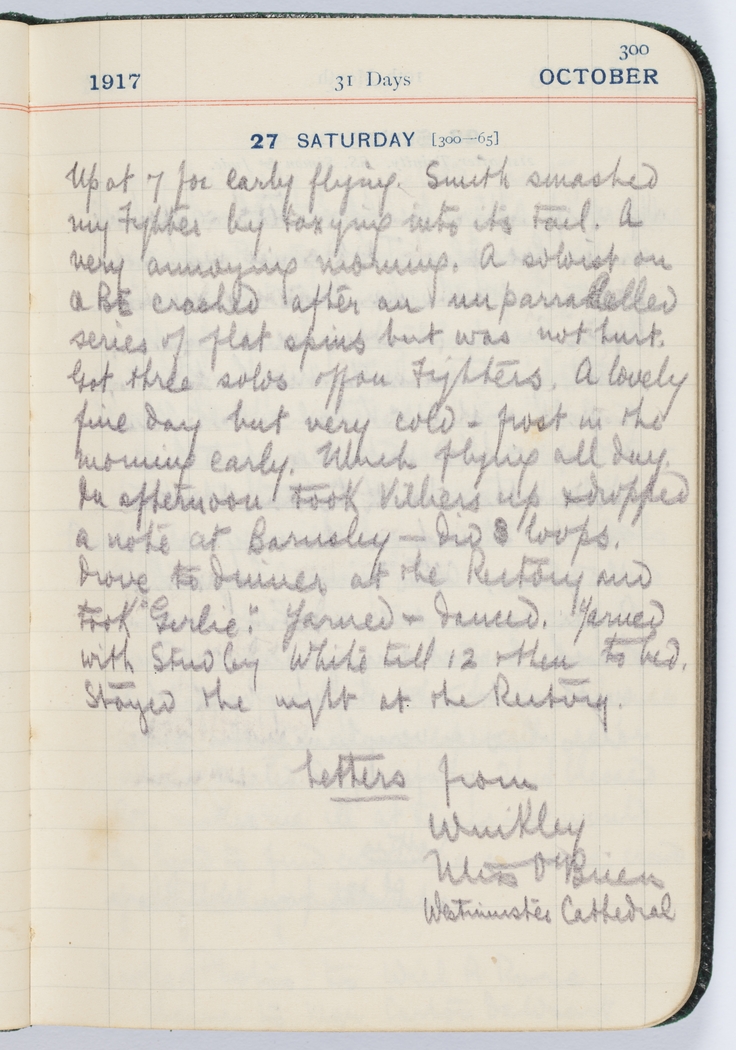 300
1917 31 Days OCTOBER
27 SATURDAY [300—65]
Up at 7 for early flying. Smith smashed
my Fighter by taxying into its tail. A
very annoying morning. A soloist on
a BE crashed after an unparralelled
series of flat spins but was not hurt.
Got three solos off on Fighters. A lovely
fine day but very cold - frost in the
morning early. Much flying all day.
In afternoon took Villiers up & dropped
a note at Barnsley — did 8 loops.
Drove to dinner at the Rectory and
took "Girlie". Yarned & danced. Yarned
with Studley White till 12 & then to bed.
Stayed the night at the Rectory.
Letters from
Winkley
Miss O'Brien
Westminster Cathedral